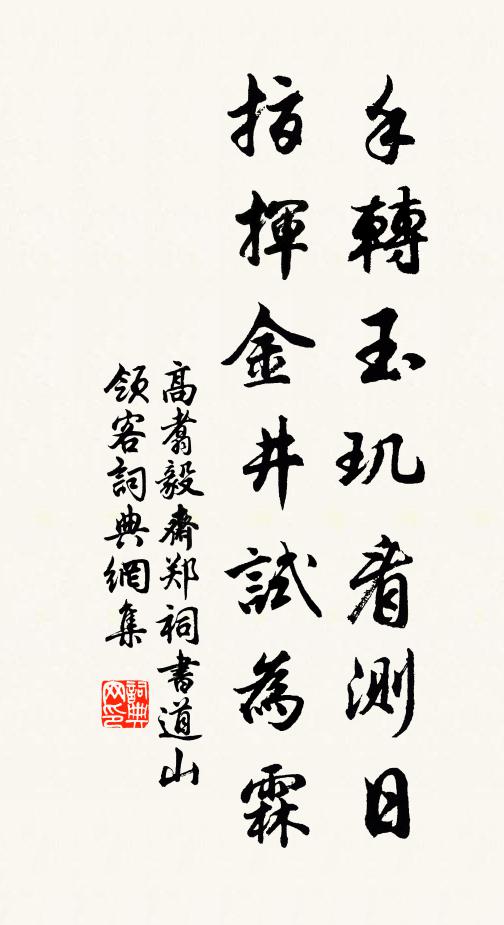 手轉玉玑看測日
指揮金井試為霖
高翥毅齋郑祠書道山
領客詞典網集
詞典
网印